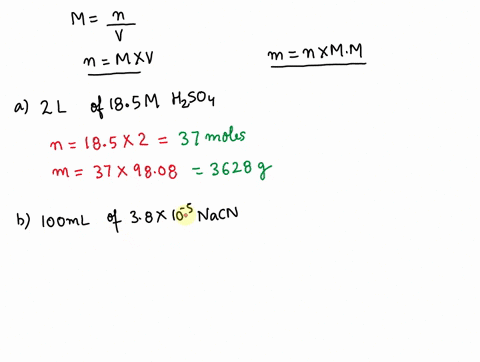 M = n/V
n = M×V
m = n×M.M
a) 2L of 18.5M H₂SO₄
n = 18.5 × 2 = 37 moles
m = 37 × 98.08 = 3628 g
b) 100mL of 3.8 × 10⁻⁵ NaCN